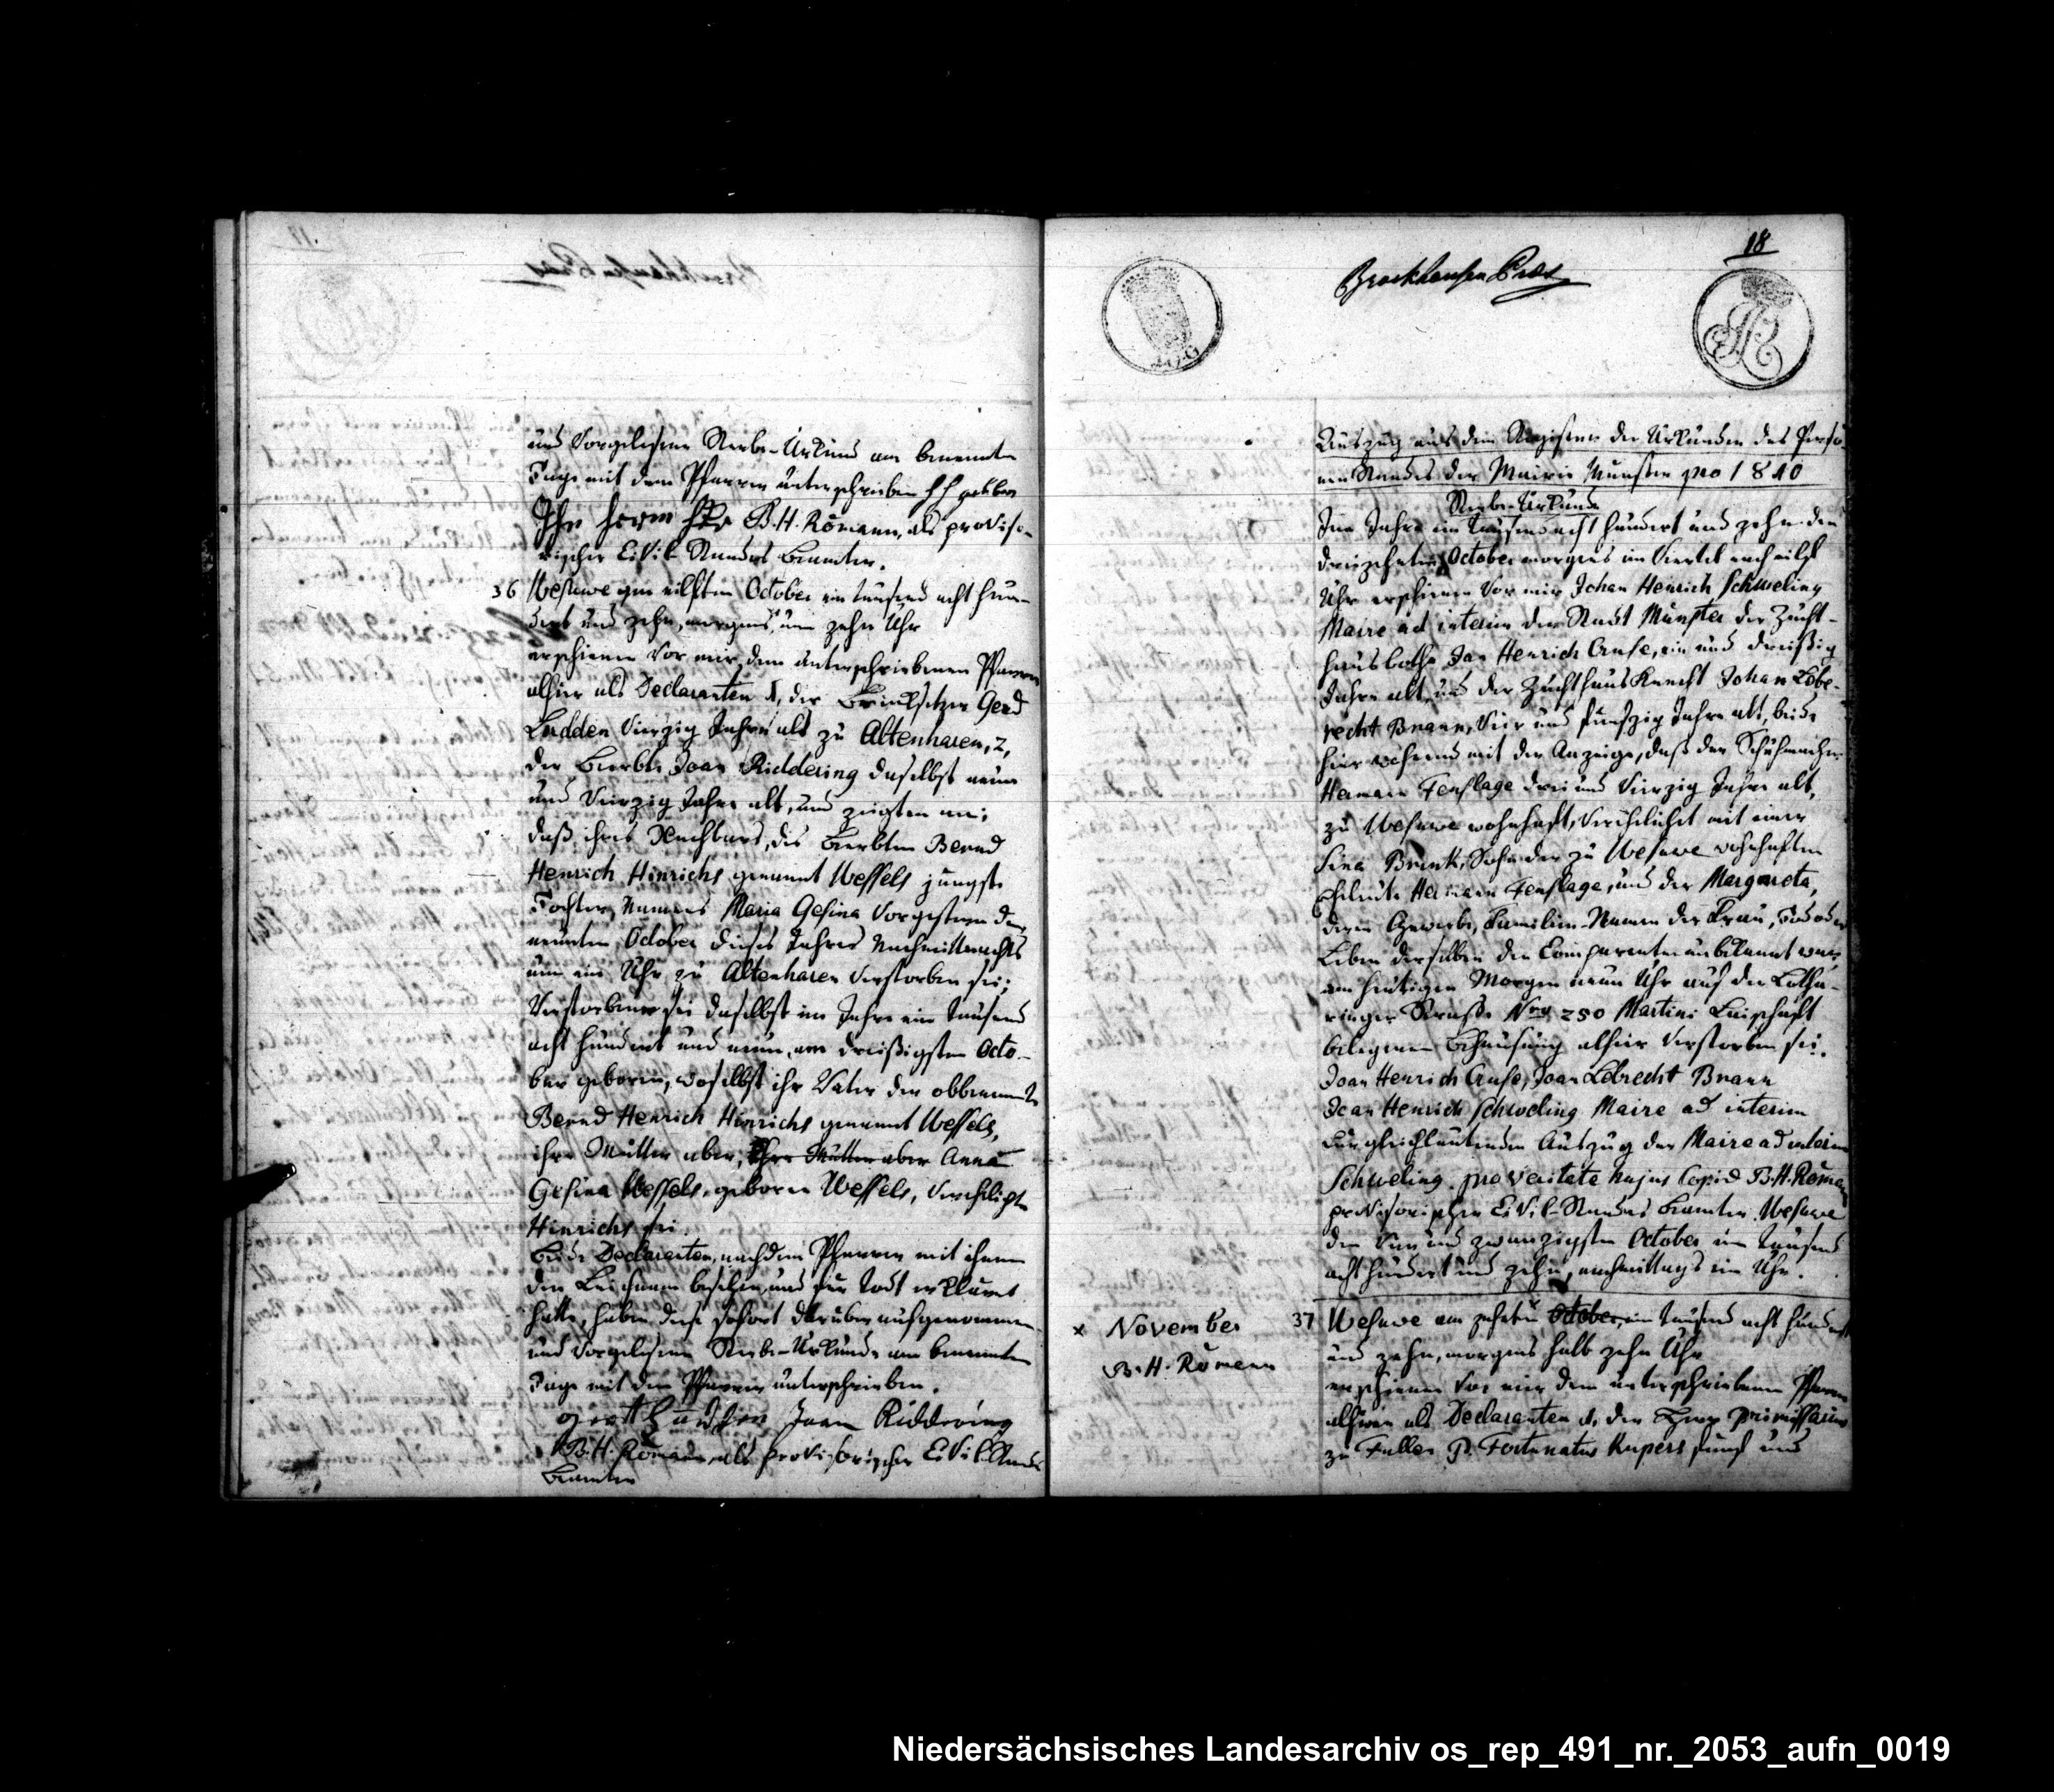 und vorgelesene Sterbe-Urkund am benannten
Tage mit dem Pfarrer unterschrieben
B. H. Römann, als proviso-
rischer Civil-Standes Beamter.
36 Wesuwe am eilften October ein tausend acht hun-
dert und zehn, morgens um zehn Uhr
erschienen vor mir dem unterschriebenen Pfarrer
alhier als Declaranten 1, der Brinksitzer Gerd
Ludden vierzig Jahre alt zu Altenharen, 2,
der Beerbte Joan Riddering daselbst neun
und vierzig Jahre alt, und zeigten an;
daß ihres Nachbars, des Beerbten Bernd
Henrich Hinrichs genannt Wessels jüngste
Tochter, Namens Maria Gesina vorgestern den
neunten October dieses Jahres Nachmitternachts
um ein Uhr zu Altenharen verstorben sei;
Verstorbene sei daselbst im Jahre ein tausend
acht hundert und neun, am dreißigsten Octo-
ber geboren, woselbst ihr Vater der obbenannte
Bernd Henrich Hinrichs genannt Wessels,
ihre Mutter aber, ihre Mutter aber Anna
Gesina Wessels, geborne Wessels, verehligte
Hinrichs sei.
Beide Declaranten, nachdem Pfarrer mit ihnen
den Leichnam besehen, und für todt erklärt
hatte, haben diese sofort darüber aufgenommene
und vorgelesene Sterbe-Urkunde am benannten
Tage mit dem Pfarrer unterschrieben.
gertt Ludden Joan Riddering
B. H. Römann, als provisorischer Civil-Standes
Beamter
18
Brockhausen Präs
Auszug aus dem Register der Urkunden des Perso-
nen Standes der Mairie Munster pro 1810
Sterbe-Urkunde
Im Jahre ein tausend acht hundert und zehn den
dreizehnten October morgens ein Viertel nach eilf
Uhr erschienen vor mir Johan Henrich Schweling
Maire ad interim der Stadt Munster der Zucht-
hausbothe Jan Henrich Cruse, ein und dreißig
Jahre alt, und der Zuchthaus Knecht Johan Lebe-
recht Brann, vier und funfzig Jahre alt, beide
hier wohnend mit der Anzeige, daß der Schuhmacher
Hermann Fenslage drei und vierzig Jahre alt,
zu Wesuwe wohnhaft, verehlicht mit einer
Sina Brink, Sohn der zu Wesuwe wohnhaften
Eheleute Hermann Fenslage, und der Margareta,
deren Gewerbe, Familien-Namen der Frau, Tod oder
Leben derselben den Comparenten unbekannt war
am heutigen Morgen neun Uhr auf der Lotha-
ringer Strasse Nro 250 Martini Leischaft
belegenen Behausung alhier verstorben sei.
Joan Henrich Cruse, Joan Lebrecht Brann
Joan Henrich Schweling Maire ad interim
Für gleichlautenden Auszug der Maire ad interim
Schweling. pro veritate hujus Copiæ B. H. Römann
provisorischer Civil-Standes Beamter. Wesuwe
den vier und zwanzigsten October ein tausend
acht hundert und zehn, nachmittags ein Uhr.
x November
B. H. Römann
37 Wesuwe am zehnten x October, ein tausend acht hundert
und zehn, morgens halb zehn Uhr
erschienen vor mir dem unterschriebenen Pfarrer
alhier als Declaranten 1, der Primissarius
zu Fullen P. Fortunatus Kupers funf und
Niedersächsisches Landesarchiv os_rep_491_nr._2053_aufn_0019